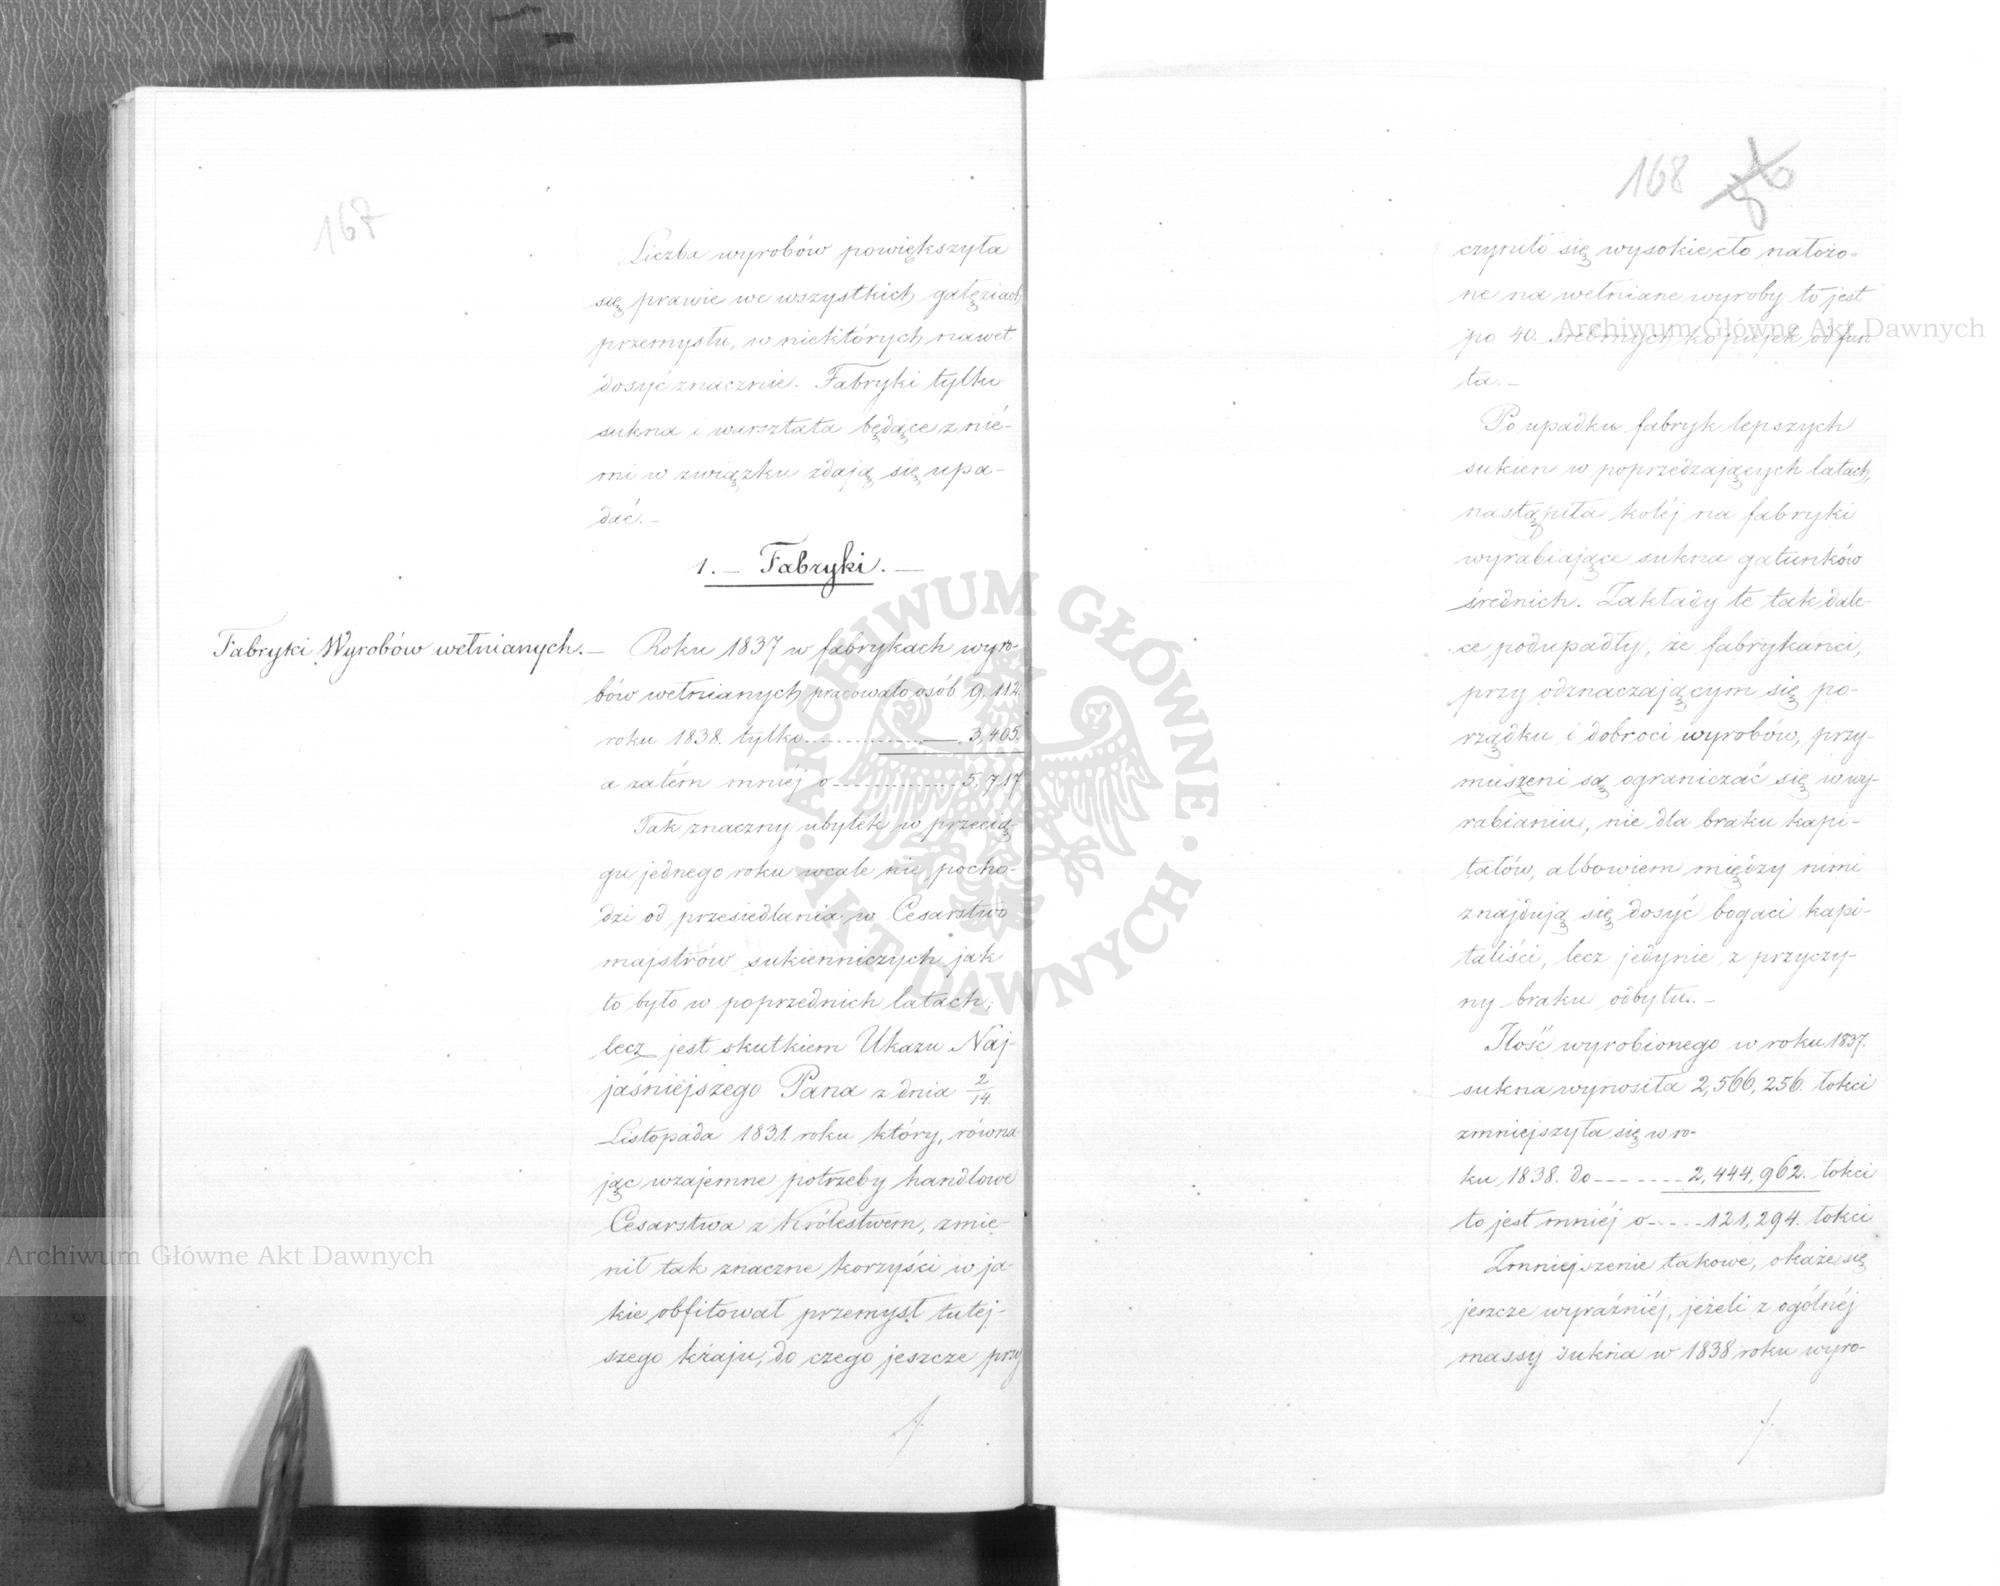 167
Liczba wyrobów powiększyła
się prawie we wszystkich gałęziach
przemysłu, w niektórych nawet
dosyć znacznie. Fabryki tylko
sukna i warsztata będące z nié-
mi w związku zdają się upa-
dać. —
1. — Fabryki. —
Fabryki Wyrobów wełnianych. —
Roku 1837 w fabrykach wyro-
bów wełnianych pracowało osób 9,112.
roku 1838. tylko 3,405.
a zatém mniéj o 5,717
Tak znaczny ubytek w przecią-
gu jednego roku wcale nie pocho-
dzi od przesiedlania w Cesarstwo
majstrów sukienniczych jak
to było w poprzednich latach;
lecz jest skutkiem Ukazu Naj-
jaśniejszego Pana z dnia 2/14.
Listopada 1831. roku który, równa-
jąc wzajemne potrzeby handlowe
Cesarstwa z Królestwem, zmie-
nił tak znaczne korzyści w ja-
kie obfitował przemysł tutej-
szego kraju, do czego jeszcze przy
168 86
czyniło się wysokie cło nałożo-
ne na wełniane wyroby to jest
po 40. srebrnych kopiejek od fun
ta. —
Po upadku fabryk lepszych
sukien w poprzedzających latach,
nastąpiła koléj na fabryki
wyrabiające sukna gatunków
średnich. Zakłady te tak dale-
ce podupadły, że fabrykanci,
przy odznaczającym się po-
rządku i dobroci wyrobów, przy-
muszeni są ograniczać się w wy-
rabianiu, nie dla braku kapi-
tałów, albowiem między nimi
znajdują się dosyć bogaci kapi-
taliści, lecz jedynie z przyczy-
ny braku odbytu. —
Ilość wyrobionego w roku 1837.
sukna wynosiła 2,566,256. łokci
zmniejszyła się w ro-
ku 1838. do 2,444,962. łokci
to jest mniéj o 121,294. łokci
Zmniejszenie takowe, okaże się
jeszcze wyraźniéj, jeżeli z ogólnéj
massy sukna w 1838 roku wyro-
Archiwum Główne Akt Dawnych
Archiwum Główne Akt Dawnych
ARCHIWUM GŁÓWNE · AKT DAWNYCH ·